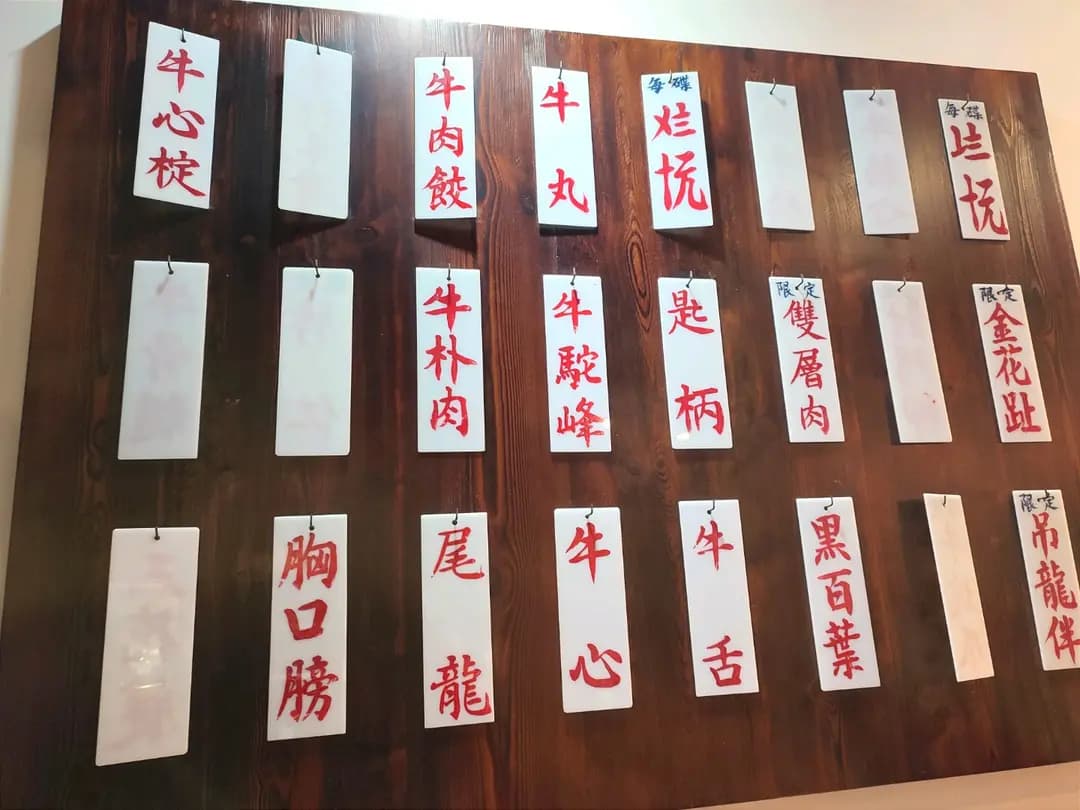 牛心椗
牛肉餃
牛丸
每碟
每碟
牛朴肉
牛駝峰
匙柄
限定
雙層肉
限定
金花趾
胸口膀
尾龍
牛心
牛舌
黑百葉
限定
吊龍伴